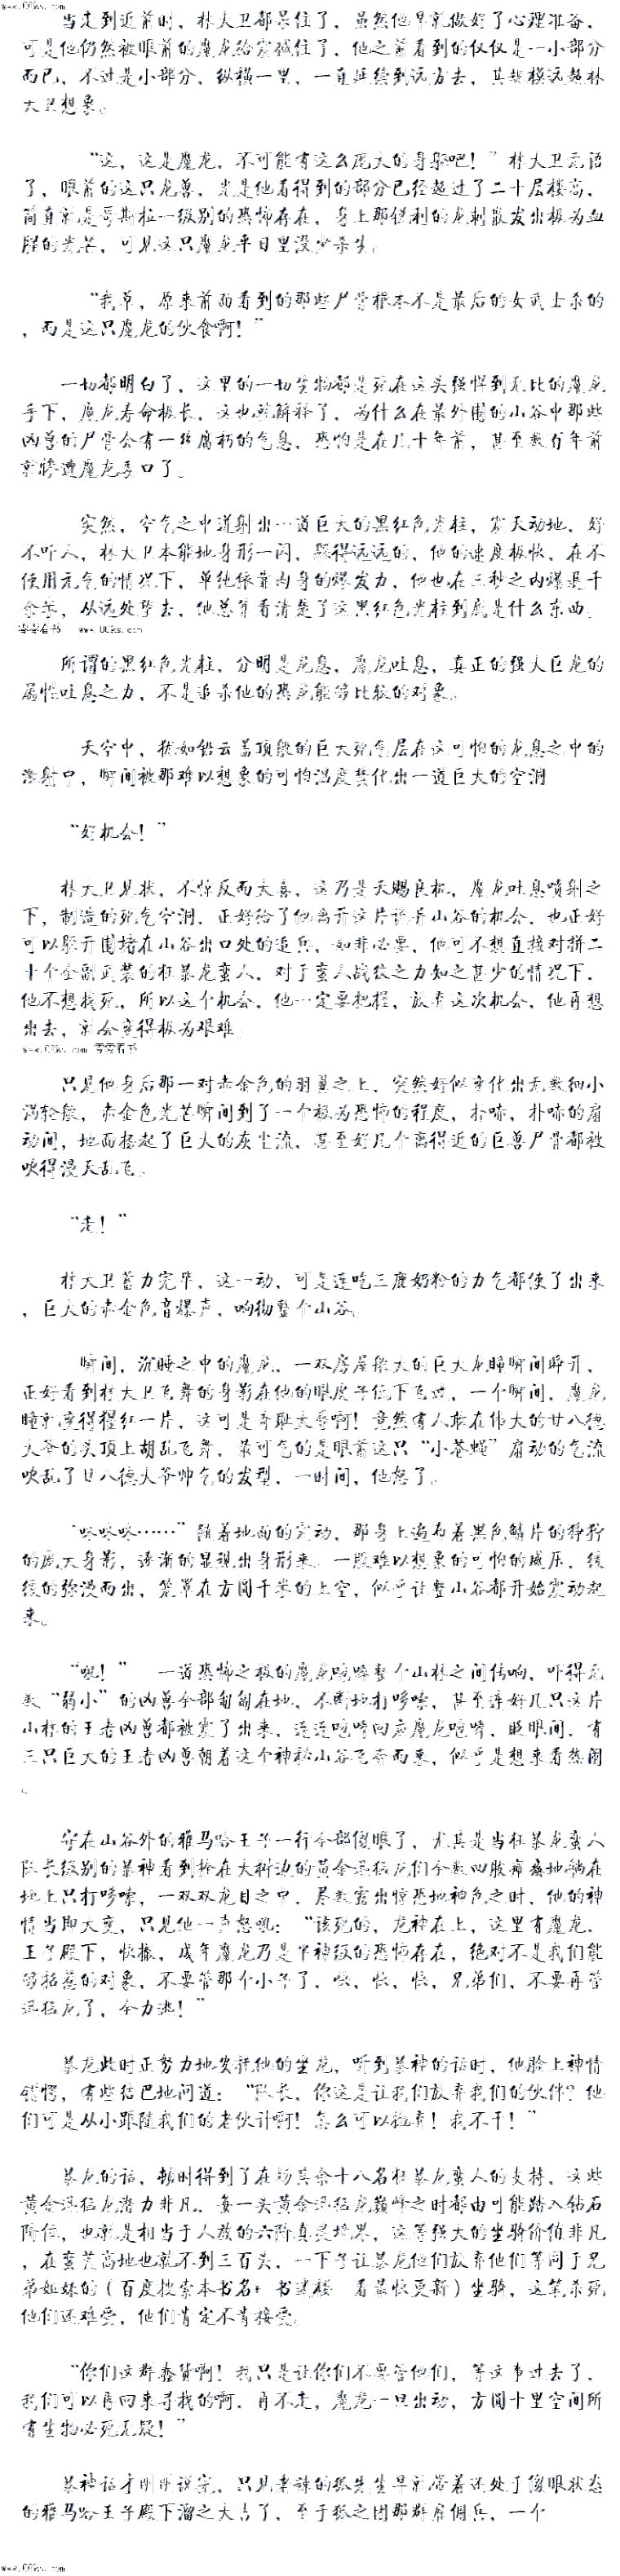 当走到近前时，林大卫都呆住了，虽然他早就做好了心理准备，
可是他仍然被眼前的魔龙给震撼住了，他之前看到的仅仅是一小部分
而已，不过是小部分，纵横一里，一直延续到远方去，其规模远超林
大卫想象。
“这，这是魔龙，不可能有这么庞大的身躯吧！”林大卫无语
了，眼前的这只龙兽，光是他看得到的部分已经超过了二十层楼高，
简直就是哥斯拉一级别的恐怖存在，身上那锐利的龙刺散发出极为血
腥的光芒，可见这只魔龙平日里没少杀生。
“我草，原来前面看到的那些尸骨根本不是最后的女武士杀的
，而是这只魔龙的伙食啊！”
一切都明白了，这里的一切生物都是死在这头强悍到无比的魔龙
手下，魔龙寿命极长，这也就解释了，为什么在最外围的小谷中那些
凶兽的尸骨会有一丝腐朽的气息，恐怕是在几十年前，甚至数百年前
就惨遭魔龙毒口了。
突然，空气之中迸射出一道巨大的黑红色光柱，震天动地，好
不吓人，林大卫本能地身形一闪，躲得远远的，他的速度极快，在不
使用元气的情况下，单纯依靠肉身的爆发力，他也在三秒之内爆退千
余米，从远处望去，他总算看清楚了这黑红色光柱到底是什么东西。
www.00ks.com
所谓的黑红色光柱，分明是龙息，魔龙吐息，真正的强大巨龙的
属性吐息之力，不是追杀他的恐龙能够比较的对象。
天空中，犹如铅云盖顶般的巨大死气层在这可怕的龙息之中的
激射中，瞬间被那难以想象的可怕温度焚化出一道巨大的空洞
“好机会！”
林大卫见状，不惊反而大喜，这乃是天赐良机，魔龙吐息喷射之
下，制造的死气空洞，正好给了他离开这片诡异山谷的机会，也正好
可以躲开围堵在山谷出口处的追兵，如非必要，他可不想直接对拼二
十个全副武装的狂暴龙蛮人，对于蛮人战纹之力知之甚少的情况下，
他不想找死，所以这个机会，他一定要把握，放弃这次机会，他再想
出去，就会变得极为艰难。
www.00ks.com
只见他身后那一对赤金色的羽翼之上，突然好似变化出无数细小
涡轮般，赤金色光芒瞬间到了一个极为恐怖的程度，扑哧，扑哧的扇
动间，地面掀起了巨大的灰尘流，甚至好几个离得近的巨兽尸骨都被
吹得漫天乱飞。
“走！”
林大卫蓄力完毕，这一动，可是连吃三鹿奶粉的力气都使了出来
，巨大的赤金色音爆声，响彻整个山谷。
瞬间，沉睡之中的魔龙，一双房屋般大的巨大龙瞳瞬间睁开，
正好看到林大卫飞舞的身影在他的眼皮子底下飞过，一个瞬间，魔龙
瞳就变得猩红一片，这可是奇耻大辱啊！竟然有人敢在伟大的廿八德
大爷的头顶上胡乱飞舞，最可气的是眼前这只“小苍蝇”扇动的气流
吹乱了廿八德大爷帅气的发型，一时间，他怒了。
“咚咚咚……”随着地面的震动，那身上遍布着黑色鳞片的狰狞
的庞大身影，逐渐的显现出身形来，一股难以想象的可怕的威压，缓
缓的弥漫而出，笼罩在方圆千米的上空，似乎让整山谷都开始震动起
来。
“吼！”一道恐怖之极的魔龙咆哮整个山林之间传响，吓得无
数“弱小”的凶兽全部匍匐在地，不断地打哆嗦，甚至连好几只这片
山林的王者凶兽都被震了出来，连连咆哮回应魔龙咆哮，眨眼间，有
三只巨大的王者凶兽朝着这个神秘山谷飞奔而来，似乎是想来看热闹
。
守在山谷外的雅马哈王子一行全部傻眼了，尤其是当狂暴龙蛮人
队长级别的暴神看到拴在大树边的黄金迅猛龙们全数四肢瘫痪地躺在
地上只打哆嗦，一双双龙目之中，尽数露出惊恐地神色之时，他的神
情当即大变，只见他一声怒吼：“该死的，龙神在上，这里有魔龙，
王子殿下，快撤，成年魔龙乃是半神级的恐怖存在，绝对不是我们能
够招惹的对象，不要管那个小子了，快，快，快，兄弟们，不要再管
迅猛龙了，全力逃！”
暴龙此时正努力地安抚他的坐龙，听到暴神的话时，他脸上神情
错愕，有些结巴地问道：“队长，你这是让我们放弃我们的伙伴？他
们可是从小跟随我们的老伙计啊！怎么可以抛弃！我不干！”
暴龙的话，顿时得到了在场其余十八名狂暴龙蛮人的支持，这些
黄金迅猛龙潜力非凡，每一头黄金迅猛龙巅峰之时都由可能踏入钻石
阶位，也就是相当于人族的六阶真灵境界，这等强大的坐骑价值非凡
，在蛮荒高地也就不到三百头，一下子让暴龙他们放弃他们等同于兄
弟姐妹的（百度搜索本书名+ 书迷楼 看最快更新）坐骑，这笔杀死
他们还难受，他们肯定不肯接受。
“你们这群蠢货啊！我只是让你们不要管他们，等这事过去了，
我们可以再回来寻找的啊，再不走，魔龙一旦出动，方圆十里空间所
有生物必死无疑！”
暴神话才刚刚说完，只见老辣的狐先生早就带着还处于傻眼状态
的雅马哈王子殿下溜之大吉了，至于狐之团那群雇佣兵，一个
www.00ks.com